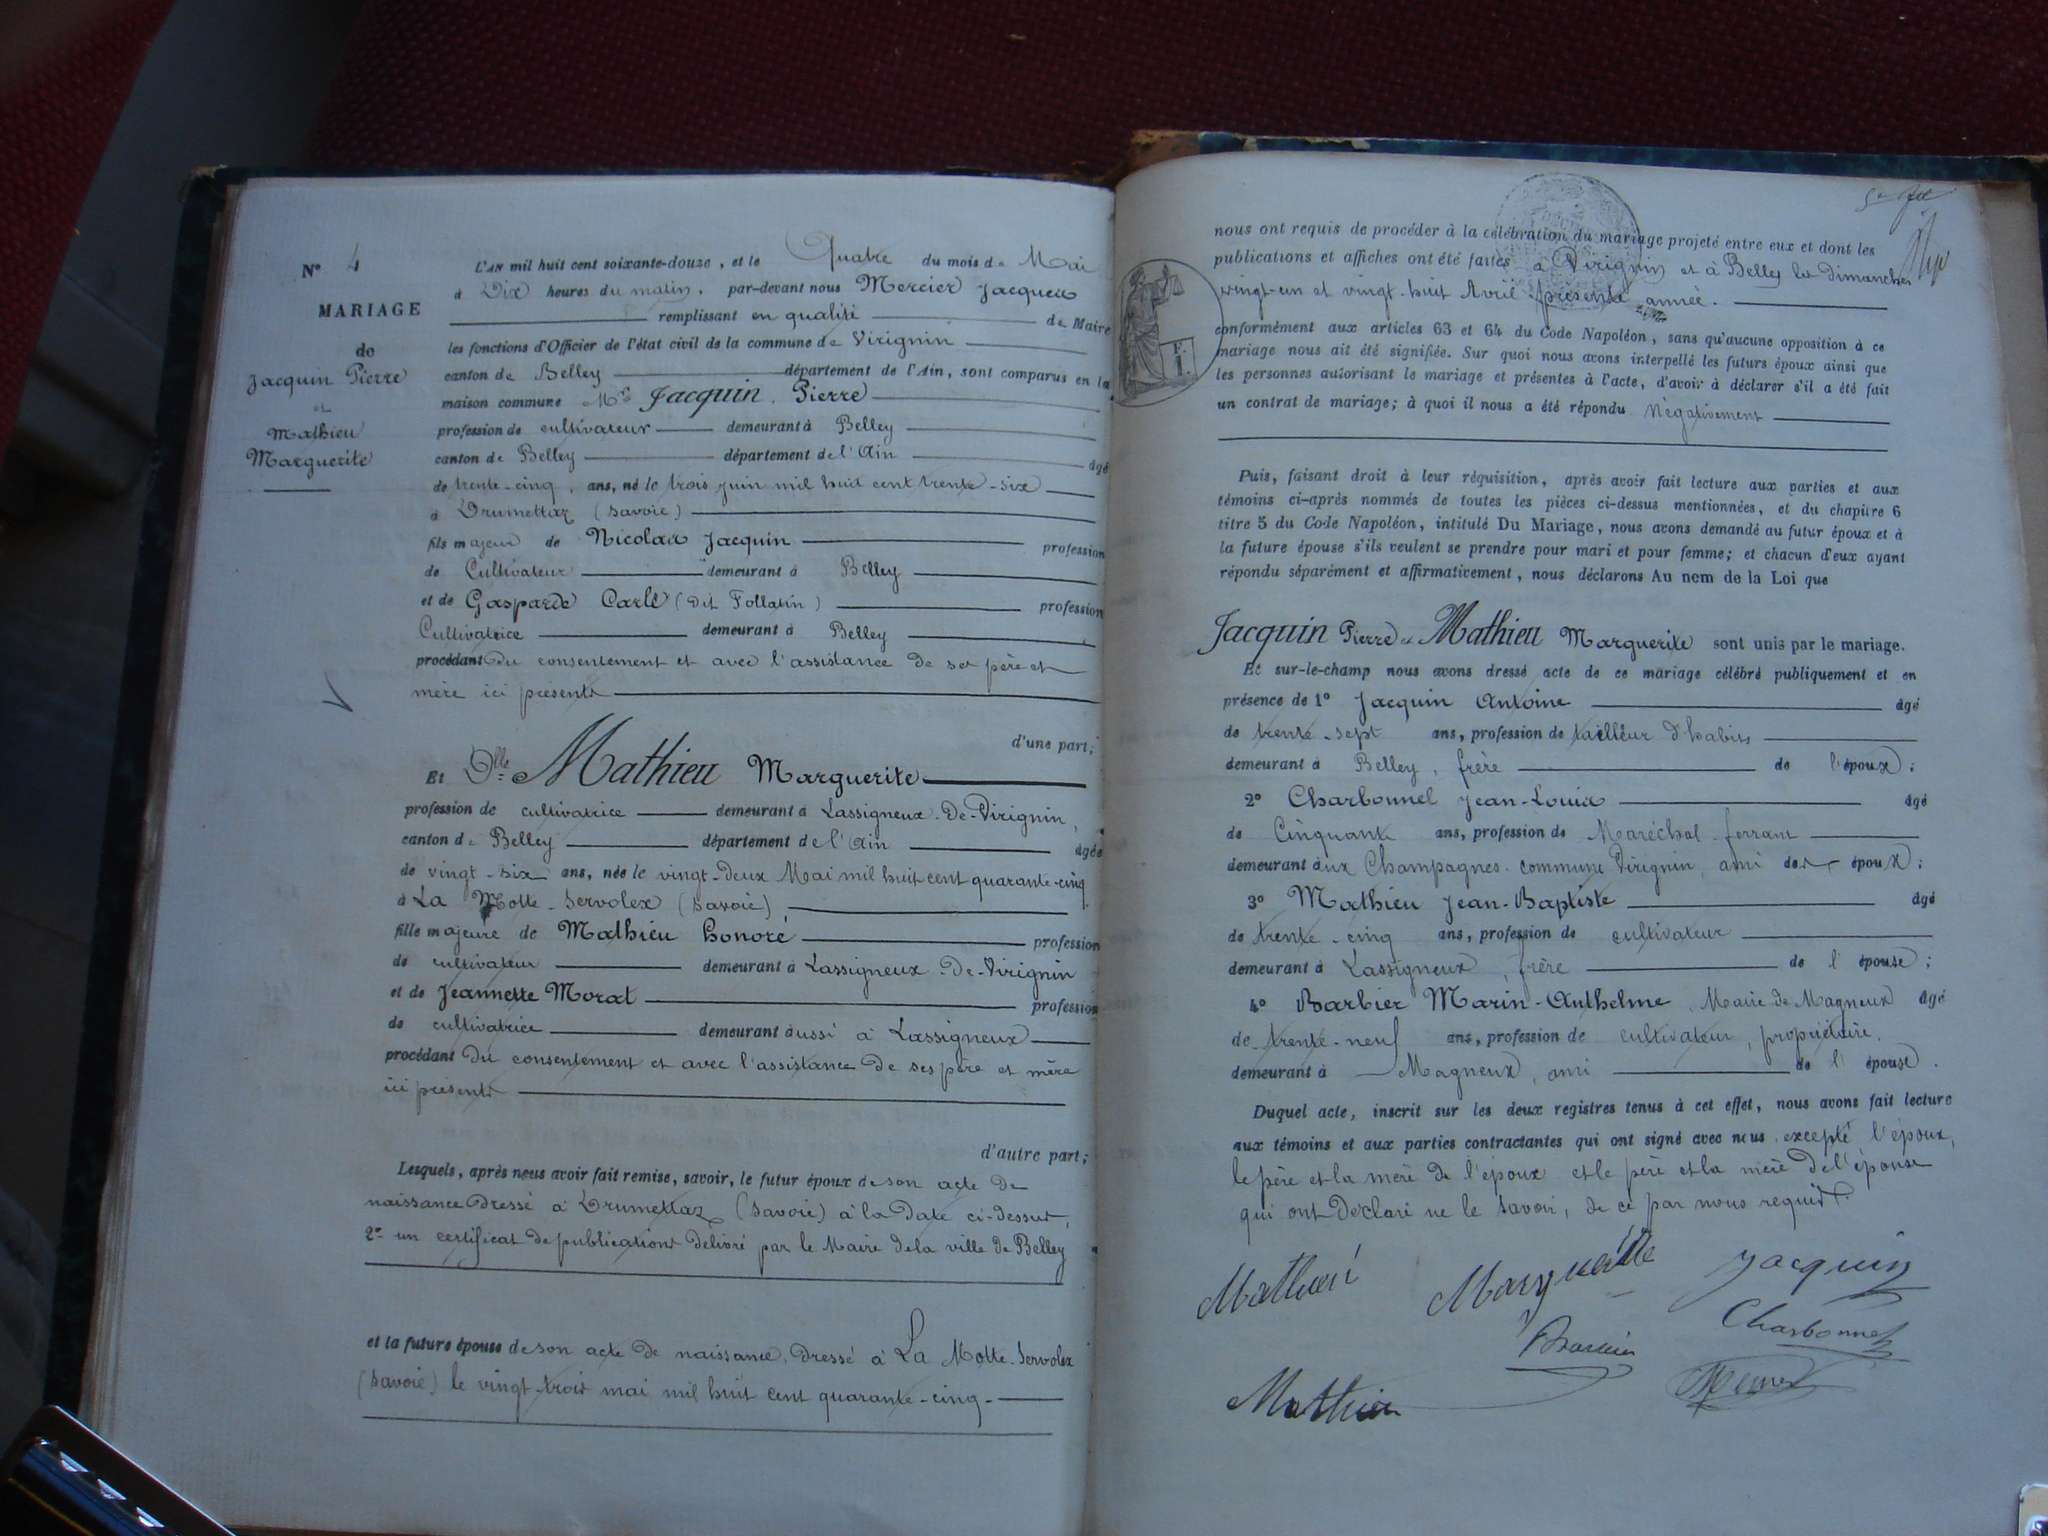 N° 4
MARIAGE
de
Jacquin Pierre
et
Mathieu
Marguerite
L'AN mil huit cent soixante-douze, et le Quatre du mois de Mai
à Dix heures du matin, par-devant nous Mercier Jacques
remplissant en qualité de Maire
les fonctions d'Officier de l'état civil de la commune de Virignin
canton de Belley département de l'Ain, sont comparus en la
maison commune Mr Jacquin Pierre
profession de cultivateur demeurant à Belley
canton de Belley département de l'Ain âgé
de trente-cinq ans, né le trois juin mil huit cent trente-six
à Drumettaz (Savoie)
fils majeur de Nicolas Jacquin profession
de Cultivateur demeurant à Belley
et de Gasparde Carle (dit Follatin) profession
Cultivatrice demeurant à Belley
procédant du consentement et avec l'assistance de ses père et
mère ici présents
d'une part;
Et Dlle Mathieu Marguerite
profession de cultivatrice demeurant à Lassigneux-De-Virignin,
canton de Belley département de l'Ain âgée
de vingt-six ans, née le vingt-deux Mai mil huit cent quarante-cinq
à La Motte-Servolex (Savoie)
fille majeure de Mathieu honoré profession
de cultivateur demeurant à Lassigneux-De-Virignin
et de Jeannette Morat profession
de cultivatrice demeurant aussi à Lassigneux
procédant du consentement et avec l'assistance de ses père et mère
ici présents
d'autre part;
Lesquels, après nous avoir fait remise, savoir, le futur époux de son acte de
naissance dressé à Drumettaz (Savoie) à la date ci-dessus,
2° un certificat de publications délivré par le Maire de la ville de Belley
et la future épouse de son acte de naissance, dressé à La Motte-Servolex
(Savoie) le vingt-trois mai mil huit cent quarante-cinq
nous ont requis de procéder à la célébration du mariage projeté entre eux et dont les
publications et affiches ont été faites à Virignin et à Belley les dimanches
vingt-un et vingt-huit Avril présente année.
conformément aux articles 63 et 64 du Code Napoléon, sans qu'aucune opposition à ce
mariage nous ait été signifiée. Sur quoi nous avons interpellé les futurs époux ainsi que
les personnes autorisant le mariage et présentes à l'acte, d'avoir à déclarer s'il a été fait
un contrat de mariage; à quoi il nous a été répondu Négativement
Puis, faisant droit à leur réquisition, après avoir fait lecture aux parties et aux
témoins ci-après nommés de toutes les pièces ci-dessus mentionnées, et du chapitre 6
titre 5 du Code Napoléon, intitulé Du Mariage, nous avons demandé au futur époux et à
la future épouse s'ils veulent se prendre pour mari et pour femme; et chacun d'eux ayant
répondu séparément et affirmativement, nous déclarons Au nem de la Loi que
Jacquin Pierre et Mathieu Marguerite sont unis par le mariage.
Et sur-le-champ nous avons dressé acte de ce mariage célébré publiquement et en
présence de 1° Jacquin Antoine âgé
de trente-sept ans, profession de tailleur d'habits
demeurant à Belley, frère de l'époux;
2° Charbonnel Jean-Louis âgé
de Cinquante ans, profession de Maréchal-ferrant
demeurant aux Champagnes commune Virignin, ami des époux;
3° Mathieu Jean-Baptiste âgé
de trente-cinq ans, profession de cultivateur
demeurant à Lassigneux, frère de l'épouse;
4° Barbier Marin-Anthelme, Maire de Magneux âgé
de trente-neuf ans, profession de cultivateur, propriétaire,
demeurant à Magneux, ami de l'épouse.
Duquel acte, inscrit sur les deux registres tenus à cet effet, nous avons fait lecture
aux témoins et aux parties contractantes qui ont signé avec nous excepté l'époux,
le père et la mère de l'époux et le père et la mère de l'épouse
qui ont déclaré ne le savoir, de ce par nous requis
Mathieu Marguerite Jacquin
Charbonnel
Barbier
Mathieu Mercier
F.
1.